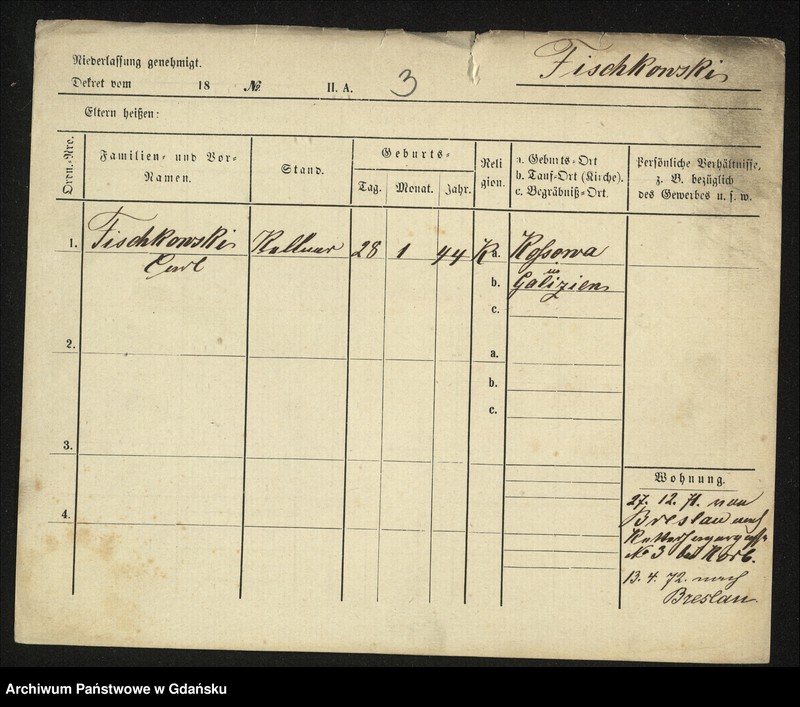 Niederlassung genehmigt.
Dekret vom 18 № II. A. 3
Fischkowski
Eltern heißen:
Ordn.-Nro.
Familien- und Vor-Namen.
Stand.
Geburts-
Tag. Monat. Jahr.
Religion.
a. Geburts-Ort
b. Tauf-Ort (Kirche).
c. Begräbniß-Ort.
Persönliche Verhältnisse,
z. B. bezüglich
des Gewerbes u. s. w.
1. Fischkowski Kellner 28 1 44 K a. Kossowa
Carl
in
b. Galizien
c.
2.
a.
b.
c.
3.
4.
Wohnung.
27. 12. 71. von
Breslau nach
№ 3 bei Korb.
13. 4. 72. nach
Breslau.
Archiwum Państwowe w Gdańsku